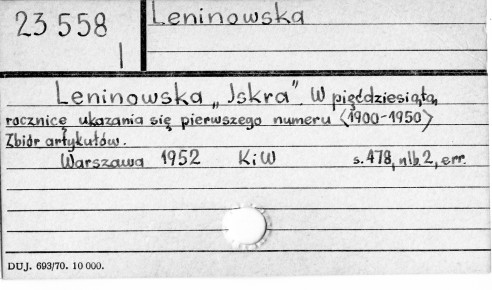 23 558
I
Leninowska
Leninowska „Iskra”. W pięćdziesiątą
rocznicę ukazania się pierwszego numeru <1900-1950>
Zbiór artykułów.
Warszawa 1952 KiW s. 478, nlb. 2, err.
DUJ. 693/70. 10 000.